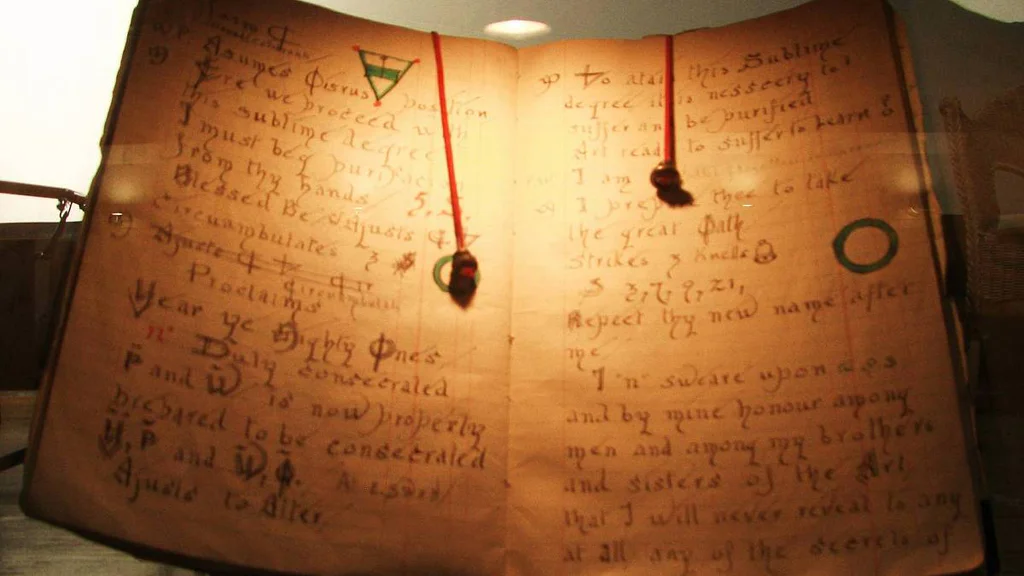 Assumes Osirus position
Ere we proceed with
this sublime degree
I must beg purification
from thy hands
Blessed Be Adjusts
Circumambulates 3
Ajusts
Proclaims
Hear ye Mighty Ones
"n" Duly consecrated
P and W is now properly
prepared to be consecrated
H, P and W,
Ajusts to Alter
To atain this Sublime
degree it is nessecery to
suffer and be purified
Art ready to suffer to Learn?
I am
I prepare thee to take
the great Oath
Strikes 3 Knells
S 3, 7, 9, 21,
Repeet thy new name after
me
I "n" sweare upon
and by mine honour among
men and among my brothers
and sisters of the Art
that I will never reveal to any
at all any of the secrets of